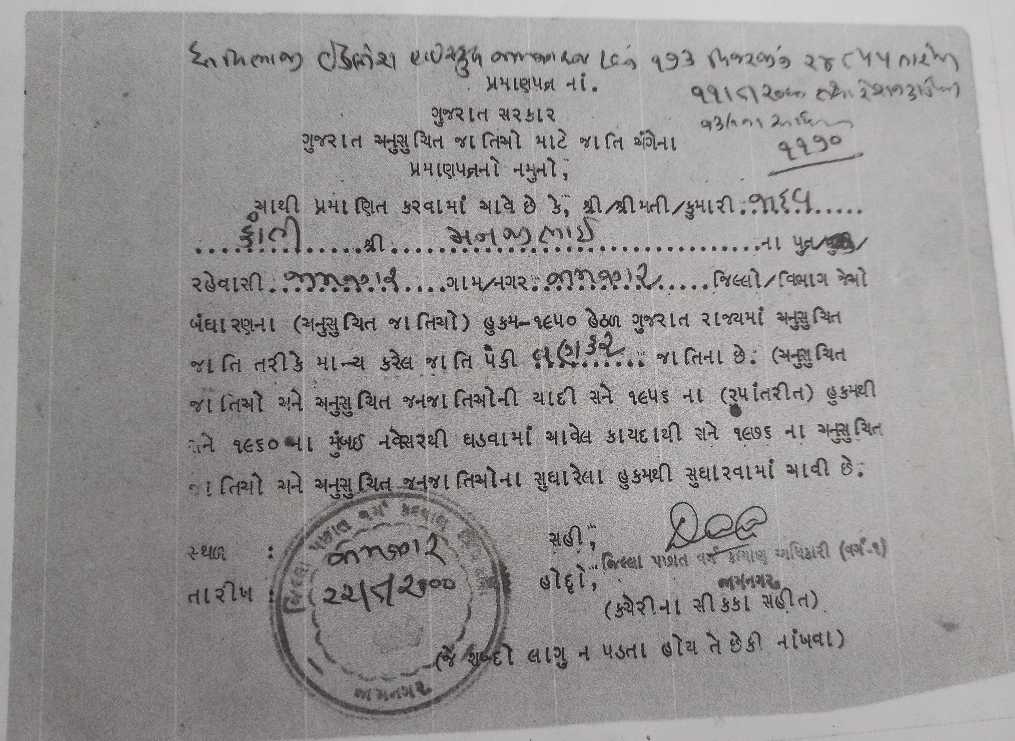 પ્રમાણપત્ર નાં.
ગુજરાત સરકાર
ગુજરાત અનુસુચિત જાતિઓ માટે જાતિ અંગેના
૧૧૭૦
પ્રમાણપત્રનો નમુનો,
આથી પ્રમાણિત કરવામાં આવે છે કે, શ્રી/શ્રીમતી/કુમારી..જાદવ.....
....કાંતી.......શ્રી......મનજીભાઈ..............ના પુત્ર/
રહેવાસી.જામનગર.....ગામ/નગર..જામનગર.....જિલ્લો/વિભાગ જેઓ
બંધારણના (અનુસુચિત જાતિઓ) હુકમ-૧૯૫૦ હેઠળ ગુજરાત રાજ્યમાં અનુસુચિત
જાતિ તરીકે માન્ય કરેલ જાતિ પૈકી વણકર.. જાતિના છે. (અનુસુચિત
જાતિઓ અને અનુસુચિત જનજાતિઓની યાદી સને ૧૯૫૬ ના (રૂપાંતરીત) હુકમથી
સને ૧૯૬૦ના મુંબઈ નવેસરથી ઘડવામાં આવેલ કાયદાથી સને ૧૯૭૬ ના અનુસુચિત
જાતિઓ અને અનુસુચિત જનજાતિઓના સુધારેલા હુકમથી સુધારવામાં આવી છે.
સ્થળ : જામનગર
સહી,
જિલ્લા પછાત વર્ગ કલ્યાણ અધિકારી (વર્ગ-૧)
જામનગર
તારીખ :
હોદ્દો,
(કચેરીના સીકકા સહીત)
(જે શબ્દો લાગુ ન પડતા હોય તે છેકી નાંખવા)
જામનગર